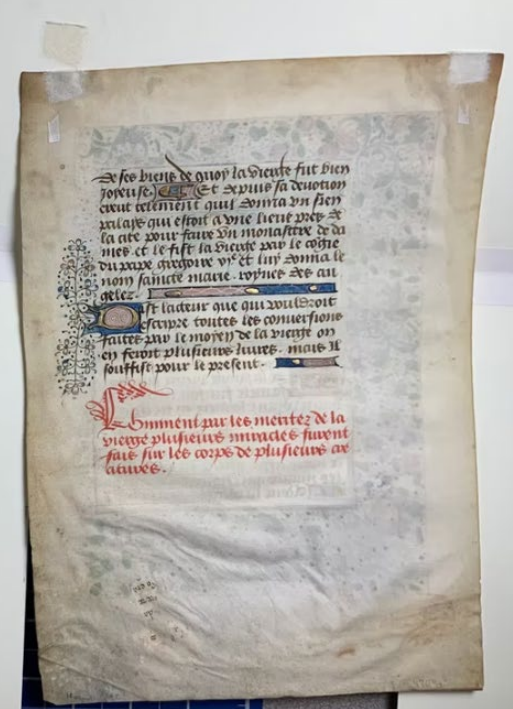 de ses biens de quoy la vierge fut bien
joyeuse. Et depuis sa devotion
creut telement quil donna un sien
palays qui estoit a une lieue pres de
la cite pour faire un monastere de da
mes et le fist la vierge par le congie
du pape gregoire vije et luy donna le
nom saincte marie. roynes des an
gelez
Dist lacteur que qui vouldroit
escripre toutes les conversions
faites par le moyen de la vierge on
en feroit plusieurs livres. mais Il
souffist pour le present.
Comment par les meritez de la
vierge plusieurs miracles furent
fais sur les corps de plusieurs cre
atures.